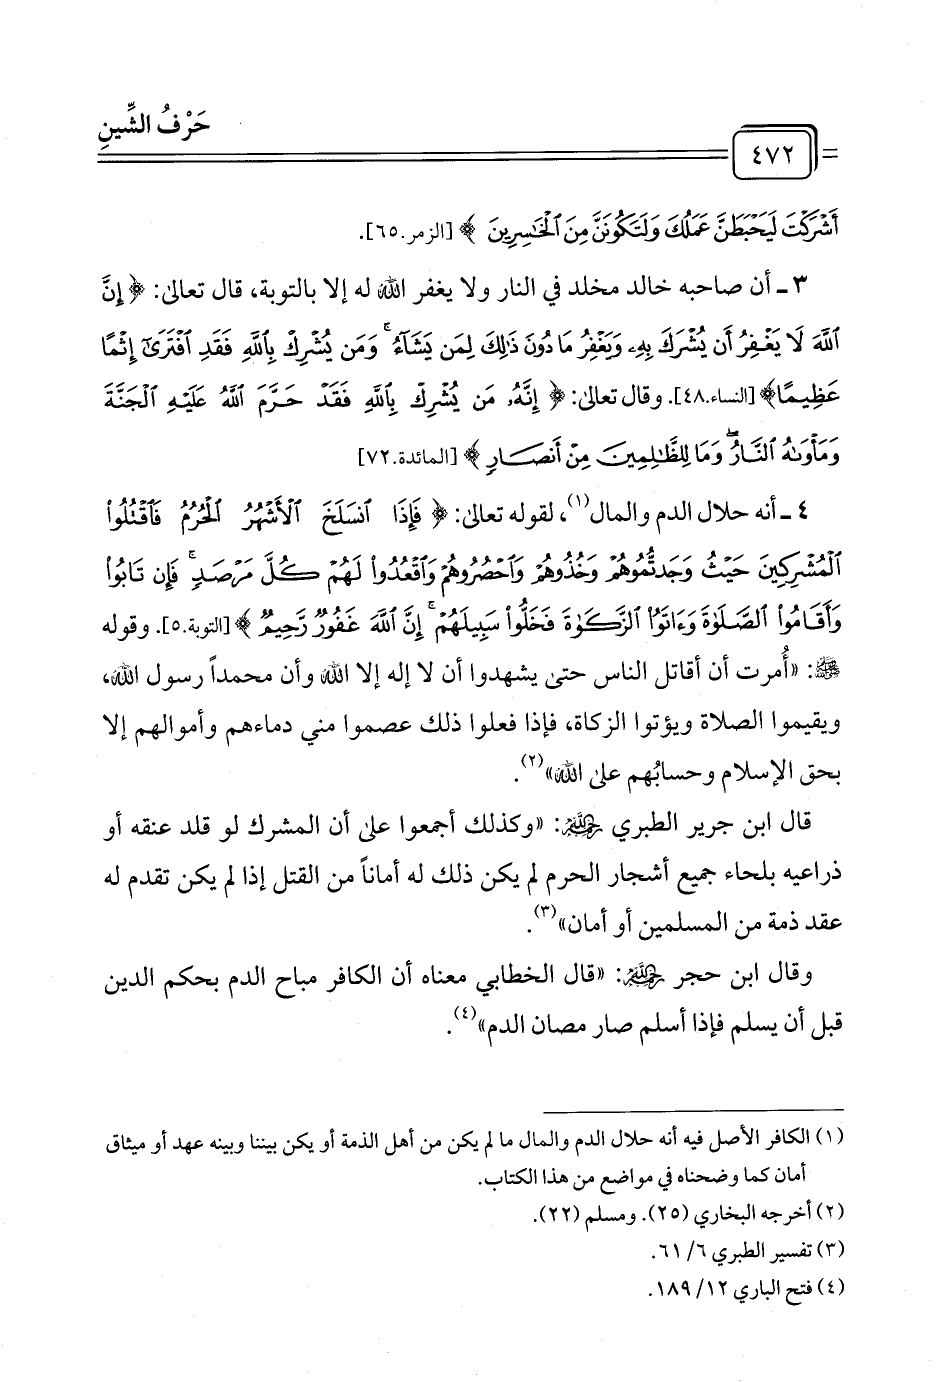 حَرْفُ الشِّينِ
٤٧٢
أَشْرَكْتَ لَيَحْبَطَنَّ عَمَلُكَ وَلَتَكُونَنَّ مِنَ ٱلْخَٰسِرِينَ ﴾ [الزمر.٦٥].
٣ ـ أن صاحبه خالد مخلد في النار ولا يغفر الله له إلا بالتوبة، قال تعالىٰ: ﴿ إِنَّ
ٱللَّهَ لَا يَغْفِرُ أَن يُشْرَكَ بِهِۦ وَيَغْفِرُ مَا دُونَ ذَٰلِكَ لِمَن يَشَآءُ ۚ وَمَن يُشْرِكْ بِٱللَّهِ فَقَدِ ٱفْتَرَىٰٓ إِثْمًا
عَظِيمًا﴾ [النساء.٤٨]. وقال تعالىٰ: ﴿ إِنَّهُۥ مَن يُشْرِكْ بِٱللَّهِ فَقَدْ حَرَّمَ ٱللَّهُ عَلَيْهِ ٱلْجَنَّةَ
وَمَأْوَىٰهُ ٱلنَّارُ ۖ وَمَا لِلظَّٰلِمِينَ مِنْ أَنصَارٍ ﴾ [المائدة.٧٢]
٤ ـ أنه حلال الدم والمال(١)، لقوله تعالىٰ: ﴿ فَإِذَا ٱنسَلَخَ ٱلْأَشْهُرُ ٱلْحُرُمُ فَٱقْتُلُوا۟
ٱلْمُشْرِكِينَ حَيْثُ وَجَدتُّمُوهُمْ وَخُذُوهُمْ وَٱحْصُرُوهُمْ وَٱقْعُدُوا۟ لَهُمْ كُلَّ مَرْصَدٍ ۚ فَإِن تَابُوا۟
وَأَقَامُوا۟ ٱلصَّلَوٰةَ وَءَاتَوُا۟ ٱلزَّكَوٰةَ فَخَلُّوا۟ سَبِيلَهُمْ ۚ إِنَّ ٱللَّهَ غَفُورٌ رَّحِيمٌ ﴾ [التوبة.٥]. وقوله
ﷺ: «أُمرت أن أقاتل الناس حتىٰ يشهدوا أن لا إله إلا الله وأن محمداً رسول الله،
ويقيموا الصلاة ويؤتوا الزكاة، فإذا فعلوا ذلك عصموا مني دماءهم وأموالهم إلا
بحق الإسلام وحسابُهم علىٰ الله»(٢).
قال ابن جرير الطبري رحمه الله: «وكذلك أجمعوا علىٰ أن المشرك لو قلد عنقه أو
ذراعيه بلحاء جميع أشجار الحرم لم يكن ذلك له أماناً من القتل إذا لم يكن تقدم له
عقد ذمة من المسلمين أو أمان»(٣).
وقال ابن حجر رحمه الله: «قال الخطابي معناه أن الكافر مباح الدم بحكم الدين
قبل أن يسلم فإذا أسلم صار مصان الدم»(٤).
(١) الكافر الأصل فيه أنه حلال الدم والمال ما لم يكن من أهل الذمة أو يكن بيننا وبينه عهد أو ميثاق
أمان كما وضحناه في مواضع من هذا الكتاب.
(٢) أخرجه البخاري (٢٥). ومسلم (٢٢).
(٣) تفسير الطبري ٦/ ٦١.
(٤) فتح الباري ١٢/ ١٨٩.